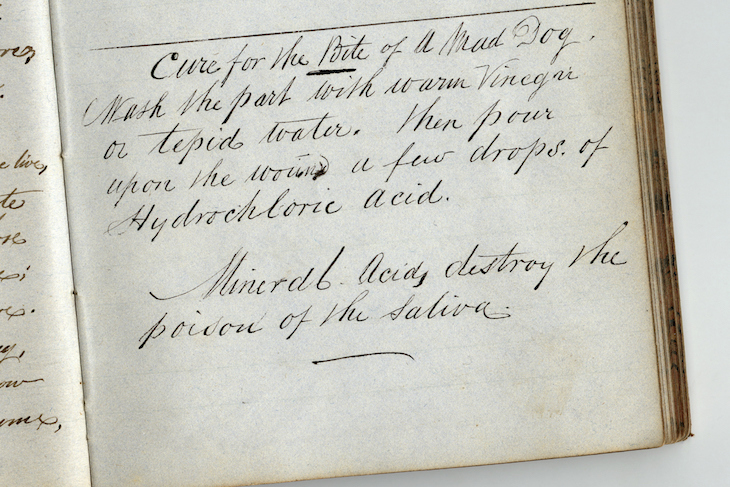 Cure for the Bite of A Mad Dog.
Wash the part with warm Vinegar
or tepid water. Then pour
upon the wound a few drops. of
Hydrochloric acid.
Mineral. Acids destroy the
poison of the saliva.
live,